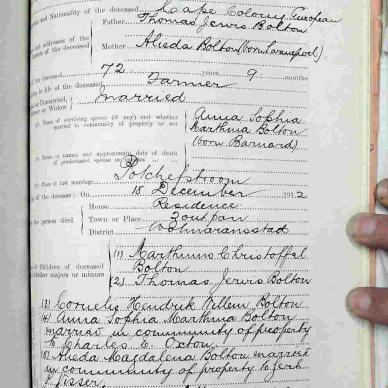 and Nationality of the deceased Cape Colony, European
Father Thomas Jervis Bolton
addresses of the
of the deceased
Mother Aleda Bolton (born Lavrepoel)
the deceased 72 years 9 months
in life of the deceased Farmer
Unmarried, Married
er or Widow)
(a) Name of surviving spouse (if any) and whether
married in community of property or not
Anna Sophia
Marthina Bolton
(born Barnard)
(b) Name or names and approximate date of death
of predeceased spouse or spouses
(c) Place of last marriage Potchefstroom
of the deceased: On 18 December 1912
House Residence
Town or Place Zoutpan
District Wolmaransstad
the person died
children of deceased
whether majors or minors
(1) Marthinus Christoffel
Bolton
(2) Thomas Jervis Bolton
(3) Cornelis Hendrik Willem Bolton
(4) Anna Sophia Marthina Bolton
married in community of property
to Charles E. Oxton
(5) Aleda Magdalena Bolton married
in community of property to
Visser